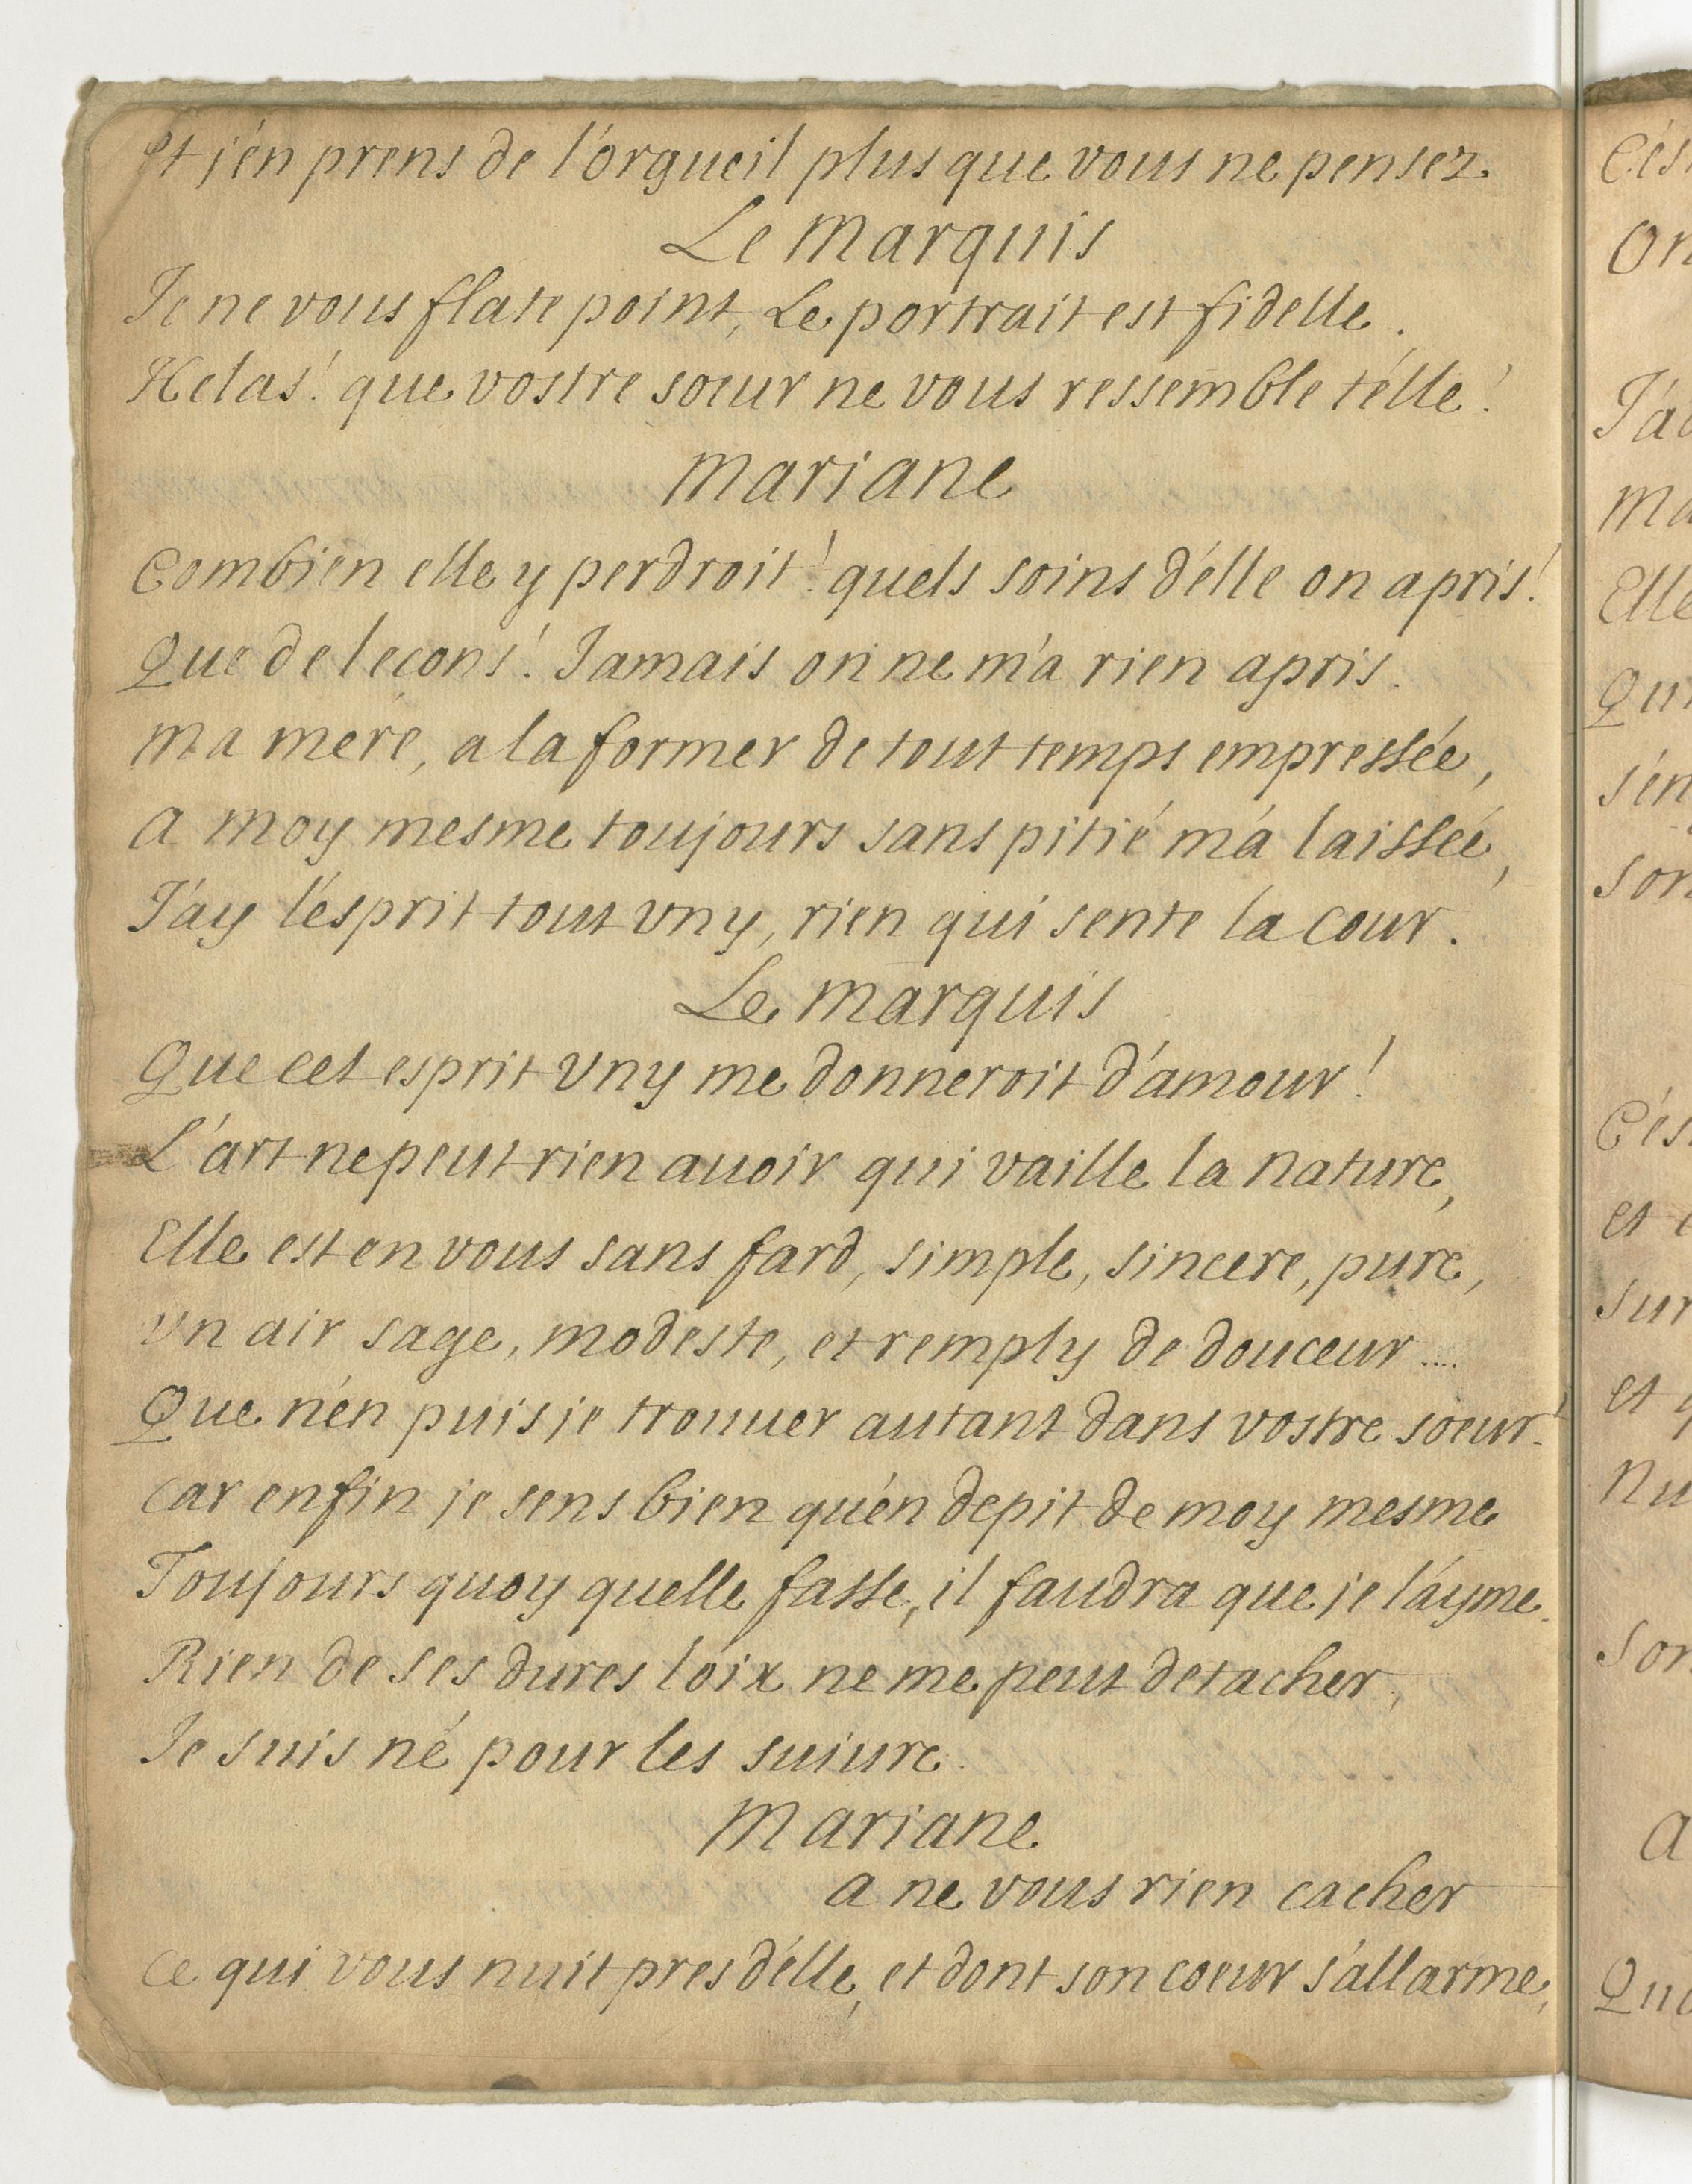 et j'en prens de l'orgueil plus que vous ne pensez.
Le Marquis
Je ne vous flate point, Le portrait est fidelle.
Helas! que vostre soeur ne vous ressemble t'elle!
Mariane
Combien elle y perdroit! quels soins d'elle on a pris!
Que de leçons! Jamais on ne m'a rien apris.
Ma mere, a la former de tout temps empressée,
A moy mesme toujours sans pitié m'a laissée,
J'ay l'esprit tout vny, rien qui sente la cour.
Le Marquis
Que cet esprit vny me donneroit d'amour!
L'art ne peut rien auoir qui vaille la nature,
Elle est en vous sans fard, simple, sincere, pure,
vn air sage, modeste, et remply de douceur....
Que n'en puis je trouuer autant dans vostre soeur!
car enfin je sens bien qu'en depit de moy mesme
Toujours quoy quelle fasse, il faudra que je l'ayme.
Rien de ses dures loix ne me peut detacher,
Je suis né pour les suiure.
Mariane
A ne vous rien cacher
ce qui vous nuit pres d'elle, et dont son coeur s'allarme,